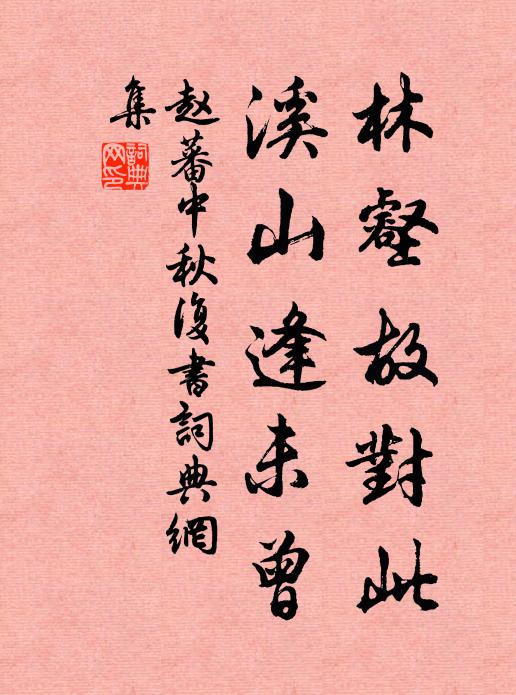 林壑故對此
溪山逢未曾
赵蕃中秋復書詞典網
集
詞典
网印